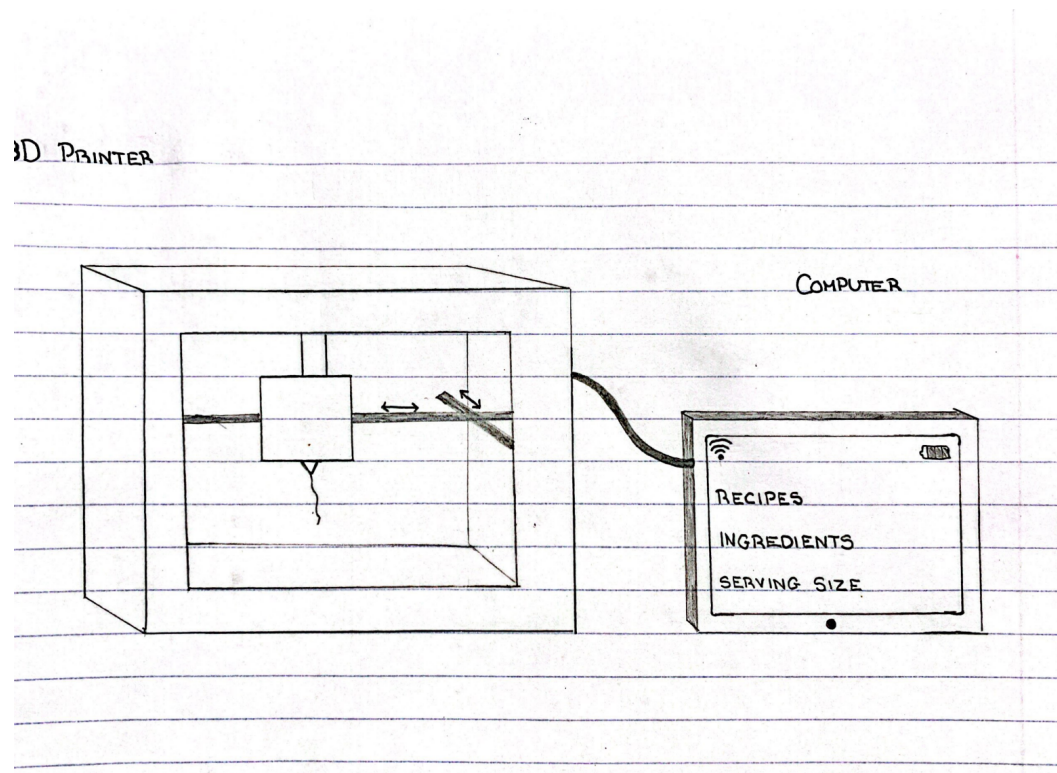 3D PRINTER
COMPUTER
RECIPES
INGREDIENTS
SERVING SIZE